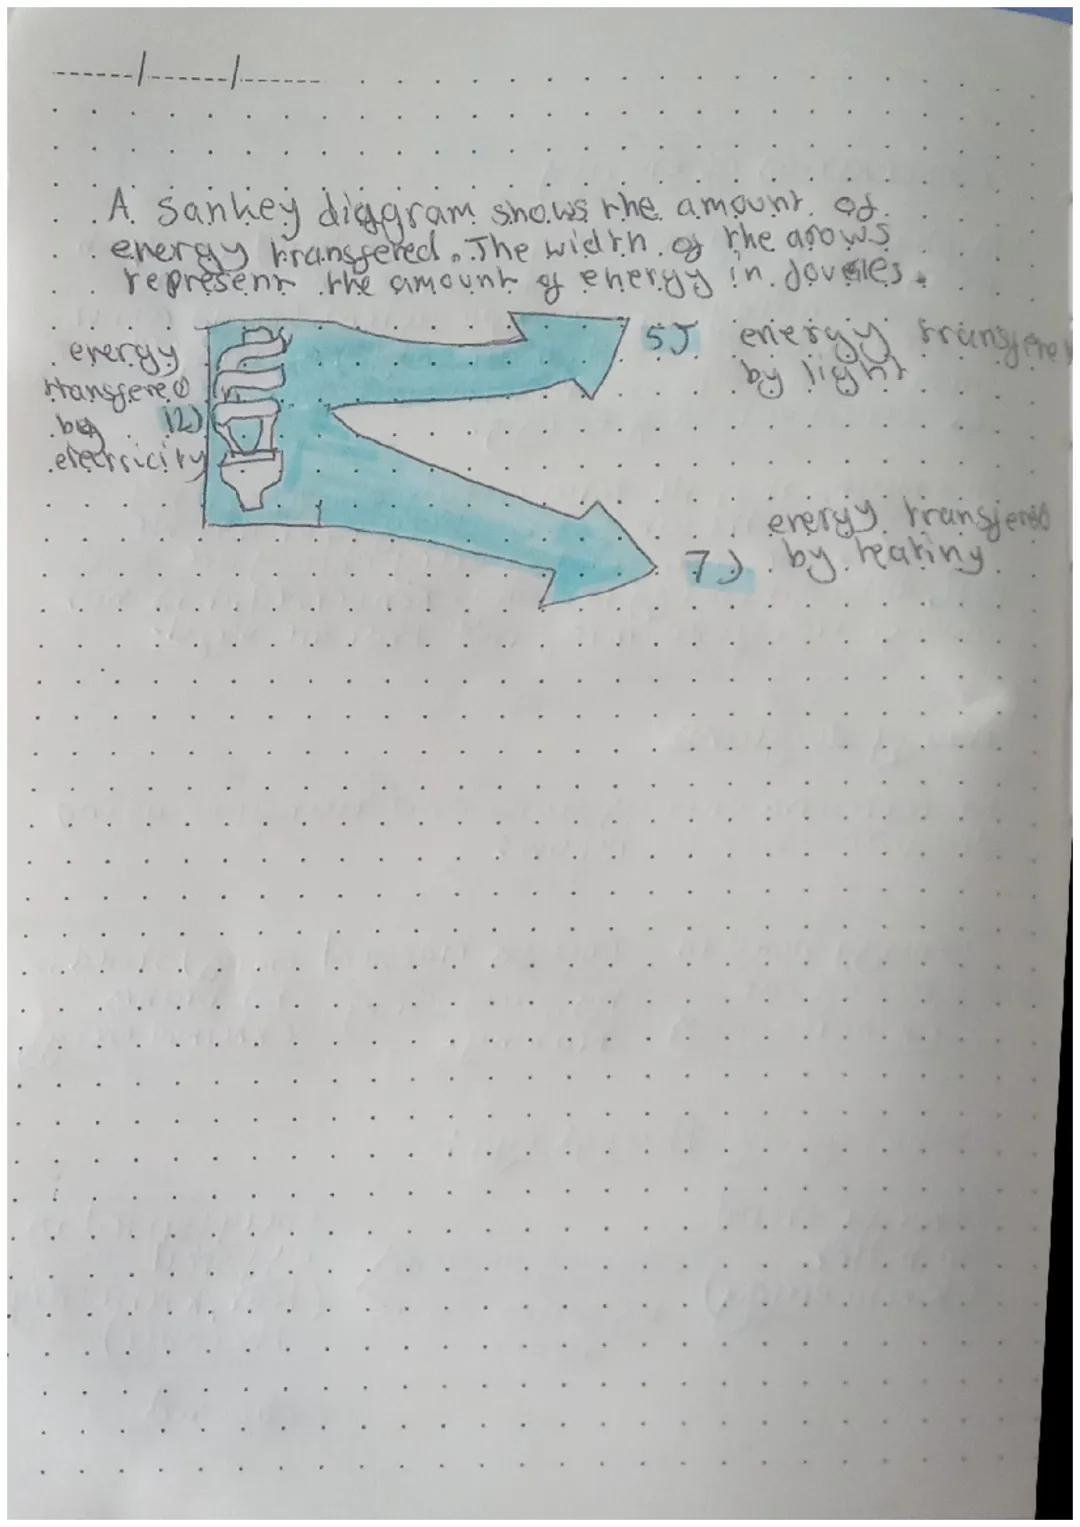 A sankey diagram shows the amount of
energy transfered. The width of the arows
represent the amount of energy in Joules.
energy
transfered
by 12J
electricity
5J energy transfered
by light
energy transfered
7J by heating